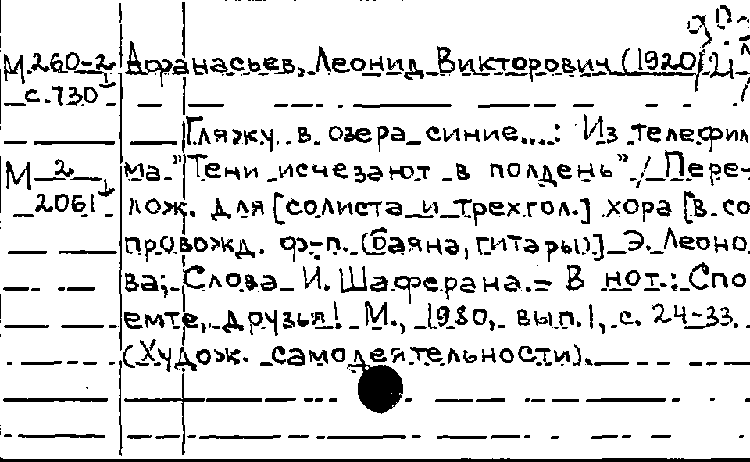 М 260-2 Афанасьев, Леонид Викторович (1920
с.730
Гляжу в озера синие...: Из телефиль
М 2 ма "Тени исчезают в полдень" / Пере-
2061 лож. для [солиста и трехгол.] хора [в со
провожд. ф-п. (баяна, гитары)] Э. Леоно
ва; Слова И. Шаферана. - В нот.: Спо
емте, друзья! М., 1980, вып.1, с. 24-33.
(Худож. самодеятельности).